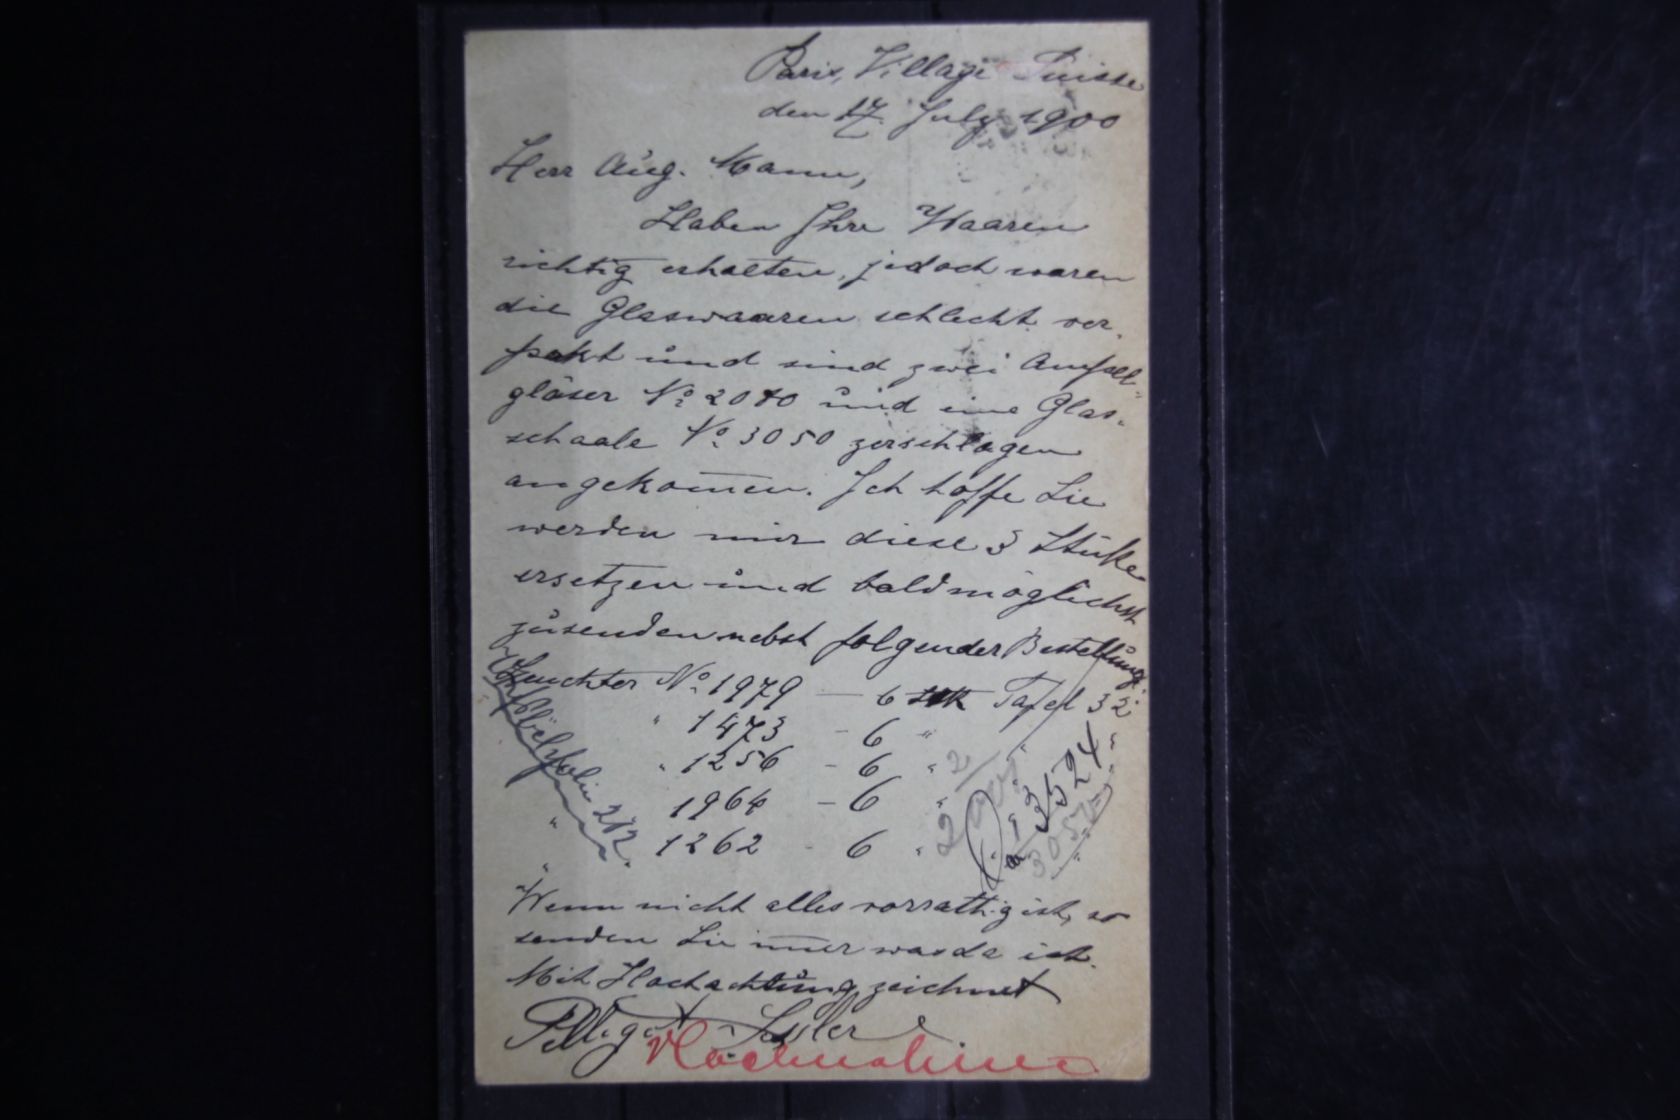 Paris, Village Suisse
den 17. July 1900
Herr Aug. Mann,
Haben Ihre Waaren
richtig erhalten, jedoch waren
die Glaswaaren schlecht ver-
pakt und sind zwei Ampel-
gläser No. 2070 und eine Glas-
schaale No. 3050 zerschlagen
angekom̅en. Ich hoffe Sie
werden mir diese 3 Stüke
ersetzen und baldmöglichst
zusenden nebst folgender Bestellung:
Leuchter No. 1979 — 6 Stk Tafel 32
" 1473 - 6 "
" 1256 - 6 "
1964 - 6 "
" 1262 - 6 "
212.
2
2
3524
3050
Wenn nicht alles vorrathig ist, so
senden Sie im̅er was da ist.
Mit Hochachtung zeichnet
Nachnahme